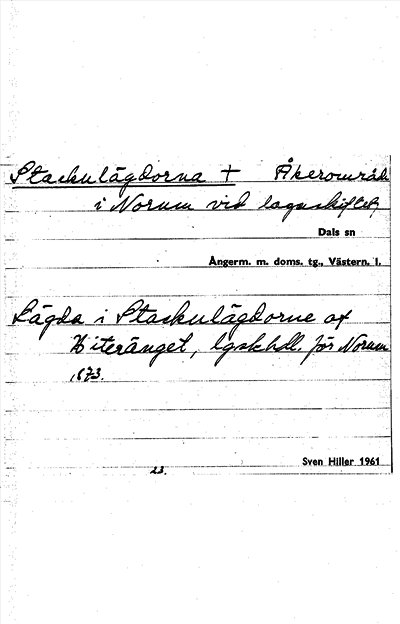 Stackulägdorna + Åkerområde
i Norum vid lagaskiftet
Dals sn
Ångerm. m. doms. tg., Västern. l.
Lägda i Stackulägdorne af
Hiteränget, lgskhdl. för Norum
1873.
Sven Hiller 1961
23.